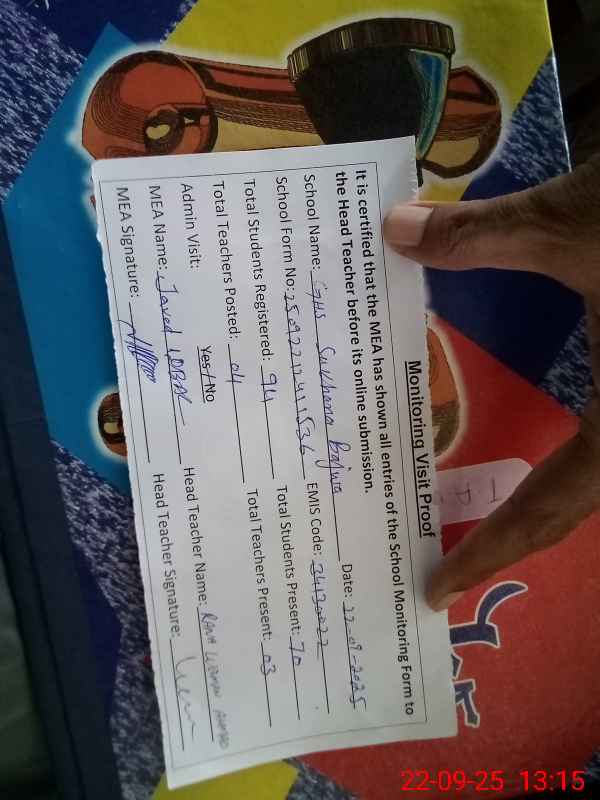 Monitoring Visit Proof
It is certified that the MEA has shown all entries of the School Monitoring Form to
the Head Teacher before its online submission.
School Name: GHS Sukhana Bajwa Date: 22-09-2025
School Form No: EMIS Code: 34120022
Total Students Registered: 94 Total Students Present: 70
Total Teachers Posted: 04 Total Teachers Present: 03
Admin Visit: Yes / No
MEA Name: Javed IQBAL Head Teacher Name: Rana
MEA Signature: Head Teacher Signature:
22-09-25 13:15